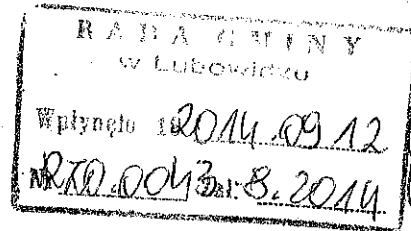 RADA GMINY
w Lubowidzu
Wpłynęło 2014.09.12
8.2014